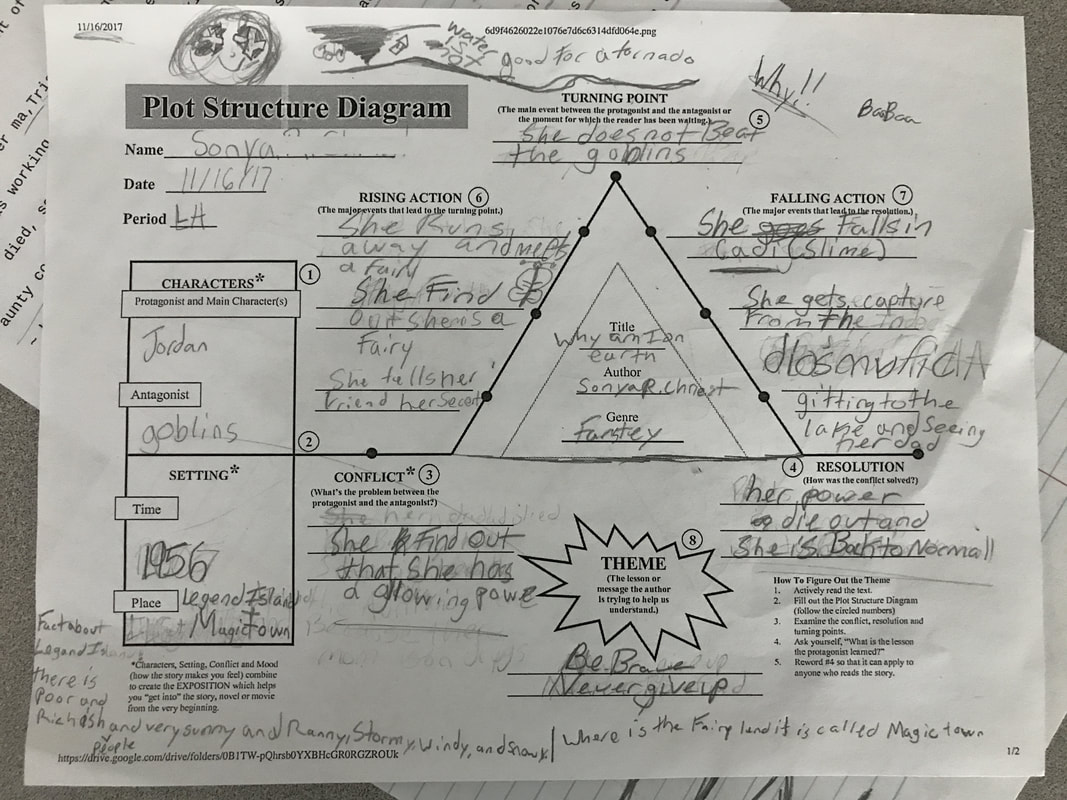 11/16/2017
6d9f4626022e1076e7d6c6314dfd064e.png
water
is
not good for a tornado
Why!!
BaaBaa
Plot Structure Diagram
Name Sonya
Date 11/16/17
Period LA
TURNING POINT
(The main event between the protagonist and the antagonist or
the moment for which the reader has been waiting.)
5
She does not Beat
the goblins
RISING ACTION 6
(The major events that lead to the turning point.)
She Runs
away and meet
a fairy
She Find
out shens a
fairy
She tells her
friend her Secert
FALLING ACTION 7
(The major events that lead to the resolution.)
She goes Falls in
(Slime)
She gets capture
From the
gitting to the
lake and Seeing
her dad
CHARACTERS*
1
Protagonist and Main Character(s)
Jordan
Antagonist
goblins
2
SETTING*
Time
1956
Place
Legend Island
Magictown
Title
Why am I on
earth
Author
Sonya R. Christ
Genre
Fanstey
CONFLICT* 3
(What's the problem between the
protagonist and the antagonist?)
She Find out
that she has
a glowing powe
4 RESOLUTION
(How was the conflict solved?)
her power
die out and
She is Back to Normall
8
THEME
(The lesson or
message the author
is trying to help us
understand.)
Be Brave
Never give up
How To Figure Out the Theme
1. Actively read the text.
2. Fill out the Plot Structure Diagram
(follow the circled numbers)
3. Examine the conflict, resolution and
turning points.
4. Ask yourself, "What is the lesson
the protagonist learned?"
5. Reword #4 so that it can apply to
anyone who reads the story.
*Characters, Setting, Conflict and Mood
(how the story makes you feel) combine
to create the EXPOSITION which helps
you "get into" the story, novel or movie
from the very beginning.
Fact about
Legend Island
there is
Poor and
Richish people and very sunny and Ranny, Stormy, windy, and snowy
Where is the Fairy land it is called Magic town
https://drive.google.com/drive/folders/0B1TW-pQhrsb0YXBHcGR0RGZROUk
1/2